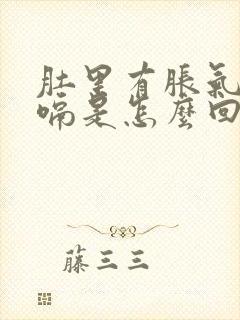 肚里有脹氣
嗝是怎麼回
藤三三